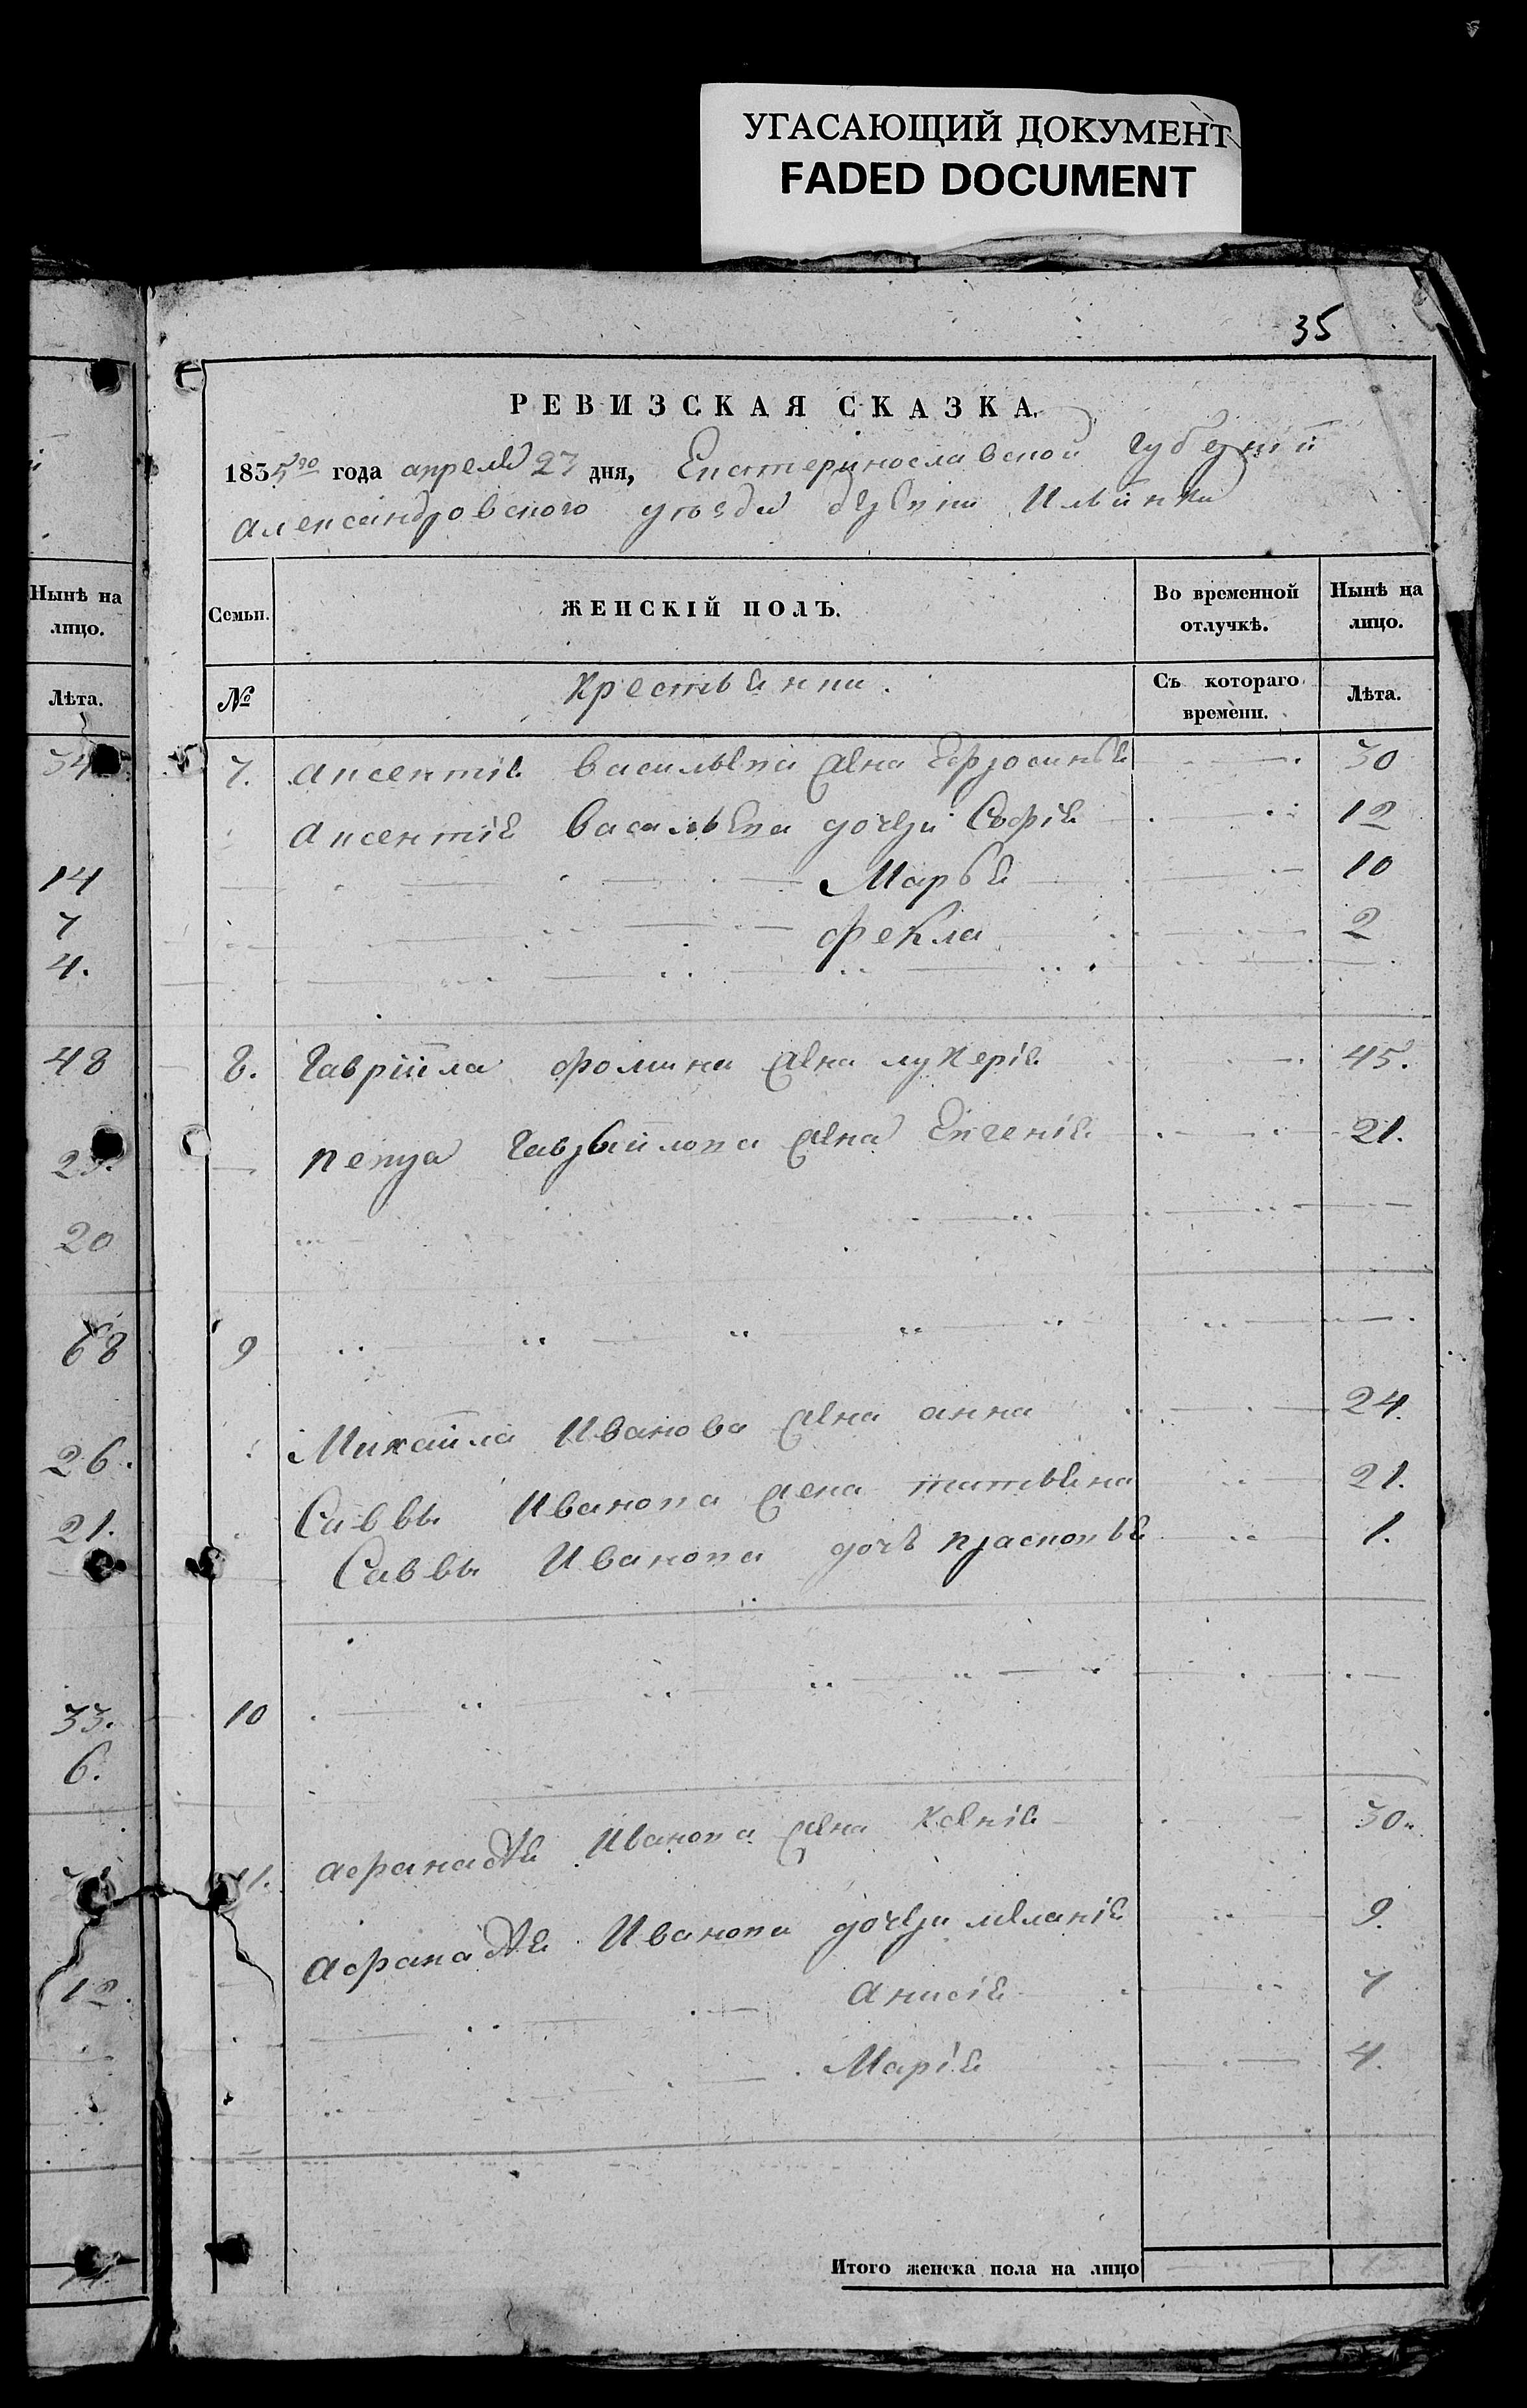 УГАСАЮЩИЙ ДОКУМЕНТ
FADED DOCUMENT
35
РЕВИЗСКАЯ СКАЗКА.
1835го года апреля 27 дня, Екатеринославской Губернии
Александровского уезда
Нынѣ на лицо.
Лѣта.
34
14
7
4.
48
20
68
26.
21.
33.
6.
12.
Семьи. ЖЕНСКІЙ ПОЛЪ. Во временной отлучкѣ. Нынѣ на лицо.
№ Крестьянки. Съ котораго времени. Лѣта.
7. Аксентія Васильева жена Ефросинья 30
Аксентія Васильева дочери Софія 12
Марья 10
Фекла 2
8. Гавриила Фомина жена Лукерія 45.
Гавриилова жена Евгенія 21.
9
Михаила Иванова жена Анна 24.
Саввы Иванова жена Татьяна 21.
Саввы Иванова дочь Прасковья 1.
10
11. Афанасія Иванова жена Ксенія 30
Афанасія Иванова дочери Меланія 9.
Анисія 7
Марія 4.
Итого женска пола на лицо